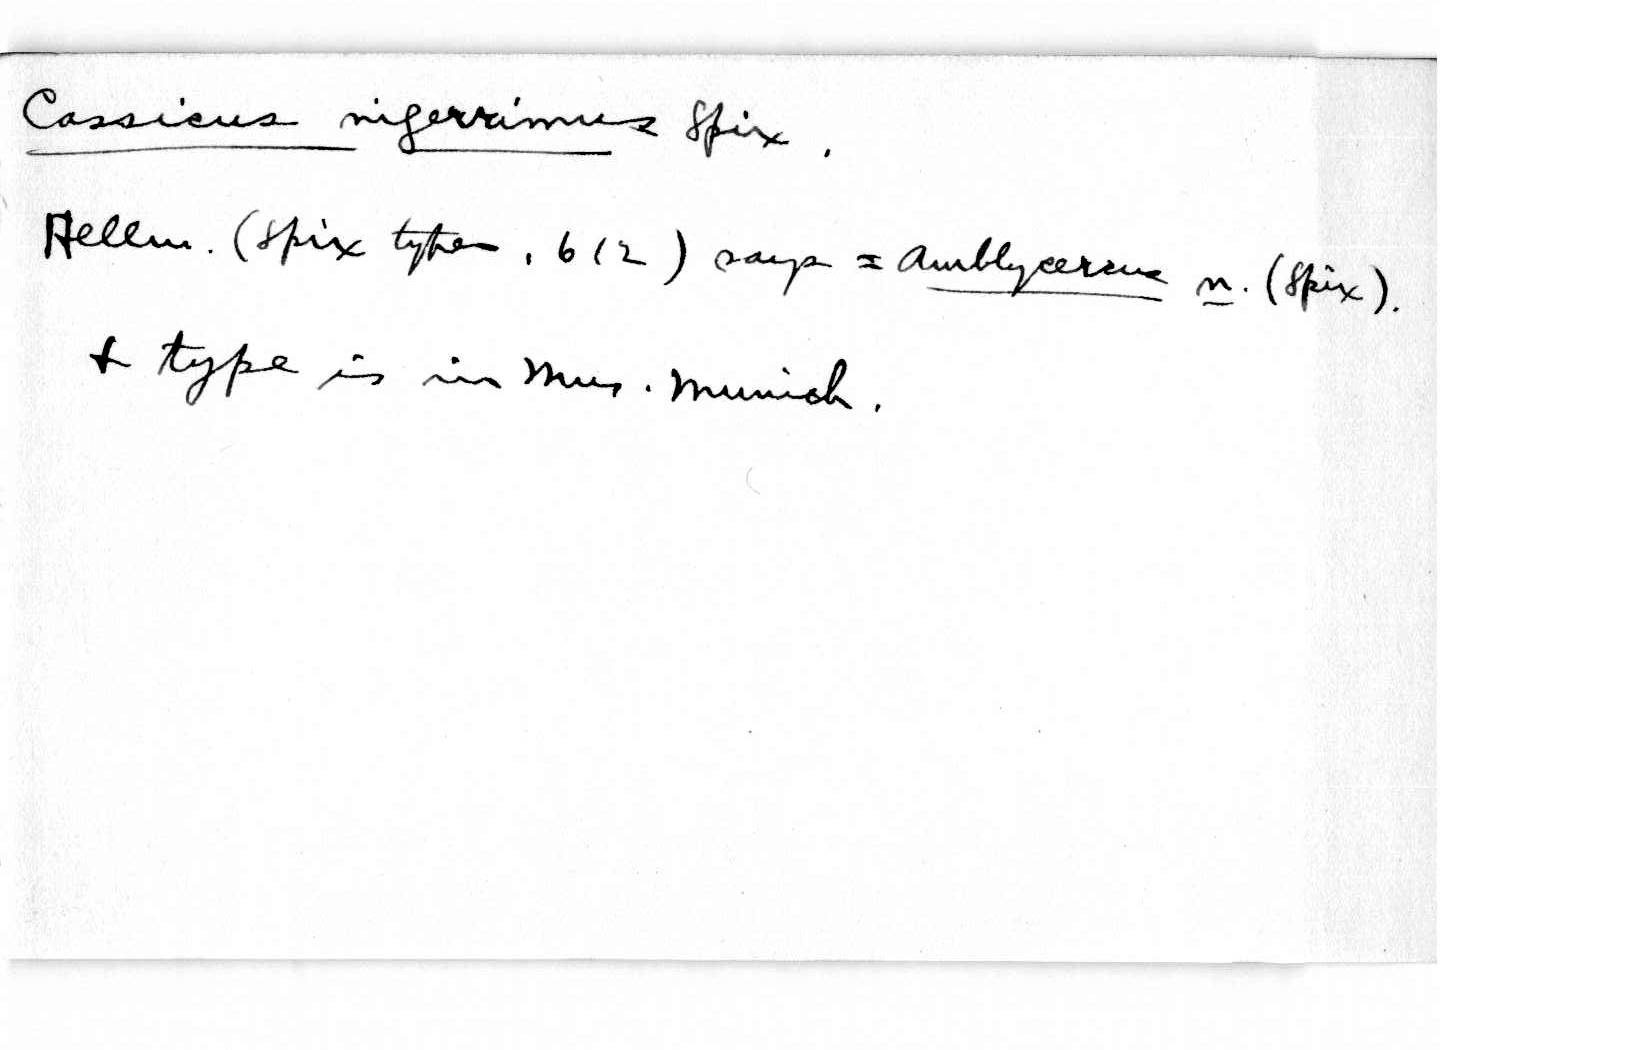 Cassicus nigerrimus Spix.
Hellm. (Spix types, 612) says = Amblycercus n. (Spix).
& type is in Mus. Munich.